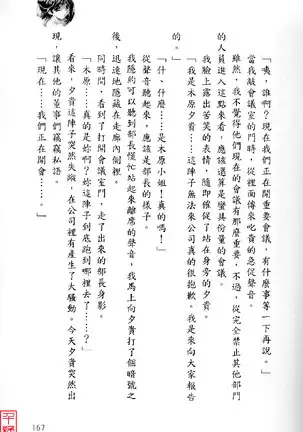 「咦，誰啊？現在我們正在開重要會議，有什麼事等一下再說。」
當我敲會議室的門時，從裡面傳來吃貴的急促聲音。
雖然，我不覺得他們現在的會議有那麼重要，不過，從完全禁止其他部門
的人員進入這點來看，應該還算是蠻具份量的會議。
我臉上露出苦笑的表情，隨即催促了站在身旁的夕貴。
「我是木原夕貴……這陣子無法來公司真的很抱歉。我是來向大家報告
的。」
「什、什麼……是木原小姐！真的嗎！」
從聲音聽起來，應該是部長的樣子。
我隱約可以聽到部長慌忙站起來離席的聲音，我馬上向夕貴打了個暗號之
後，迅速地隱藏在走廊內側裡。
同時間，看到了打開會議室門，走了出來的部長身影。
「木原……真的是妳啊？妳這陣子到底跑到哪裡去了……？」
看來，夕貴這陣子突然失蹤，在公司裡有產生了大騷動。今天夕貴突然出
現，讓其他的董事們竊竊私語。
「現在……我們正在開會……」
167